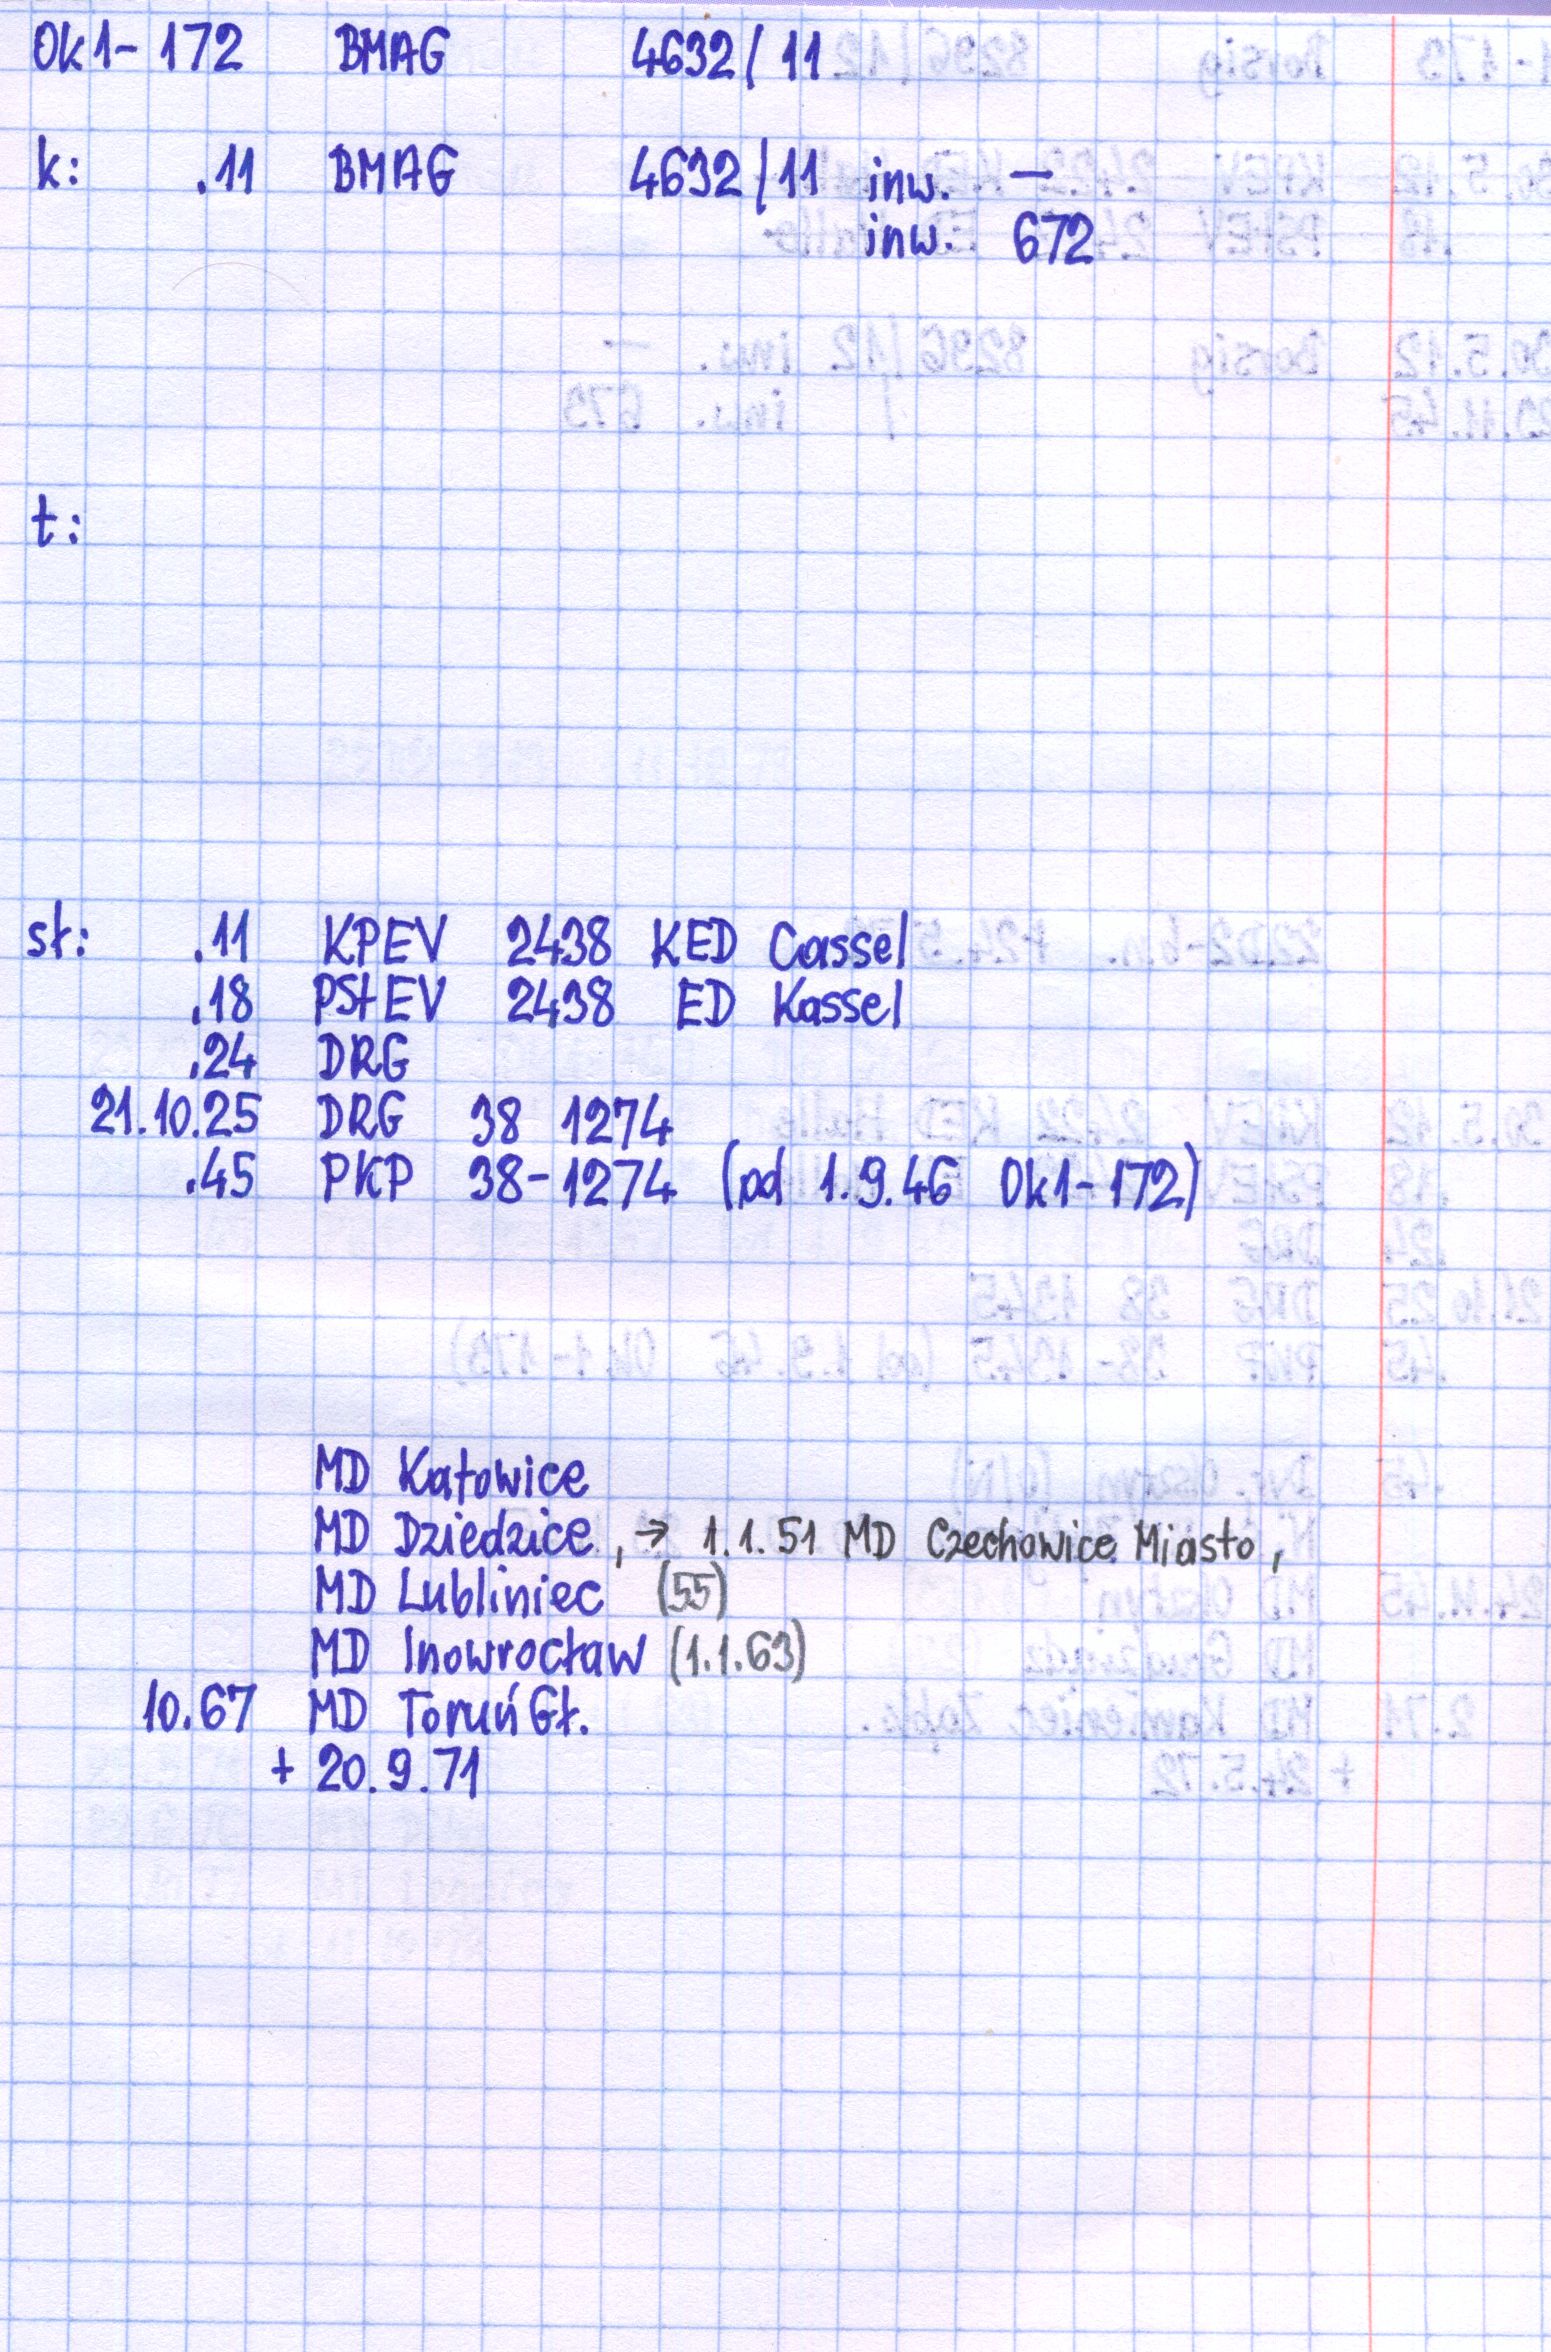 Ok1-172 BMAG 4632/11
k: .11 BMAG 4632/11 inw. —
inw. 672
t:
sł: .11 KPEV 2438 KED Cassel
.18 PStEV 2438 ED Kassel
.24 DRG
21.10.25 DRG 38 1274
.45 PKP 38-1274 (od 1.9.46 Ok1-172)
MD Katowice
MD Dziedzice, → 1.1.51 MD Czechowice Miasto,
MD Lubliniec (55)
MD Inowrocław (1.1.63)
10.67 MD Toruń Gł.
+ 20.9.71